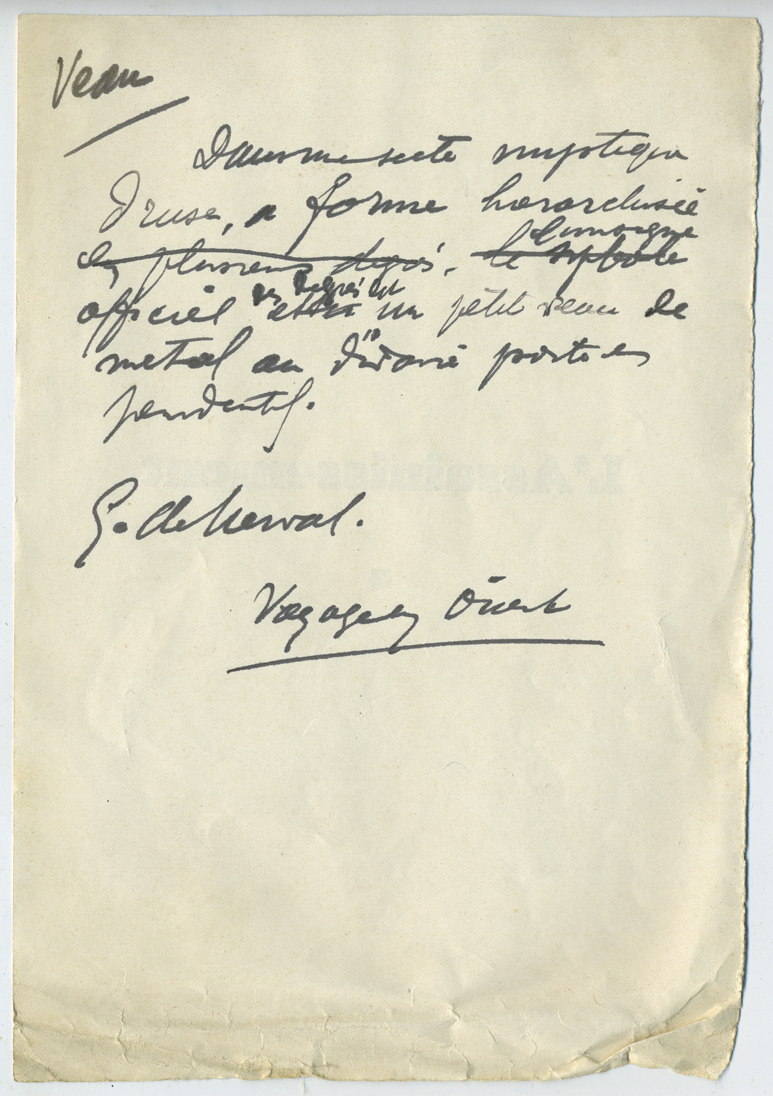 Veau
Dans une secte mystique
Druse, a forme hierarchisée
en plusieurs degrés. le symbole
l'insigne
officiel des degrés est un petit veau de
metal au "doré porté en
pendentif.
G. de Nerval.
Voyage en Orient